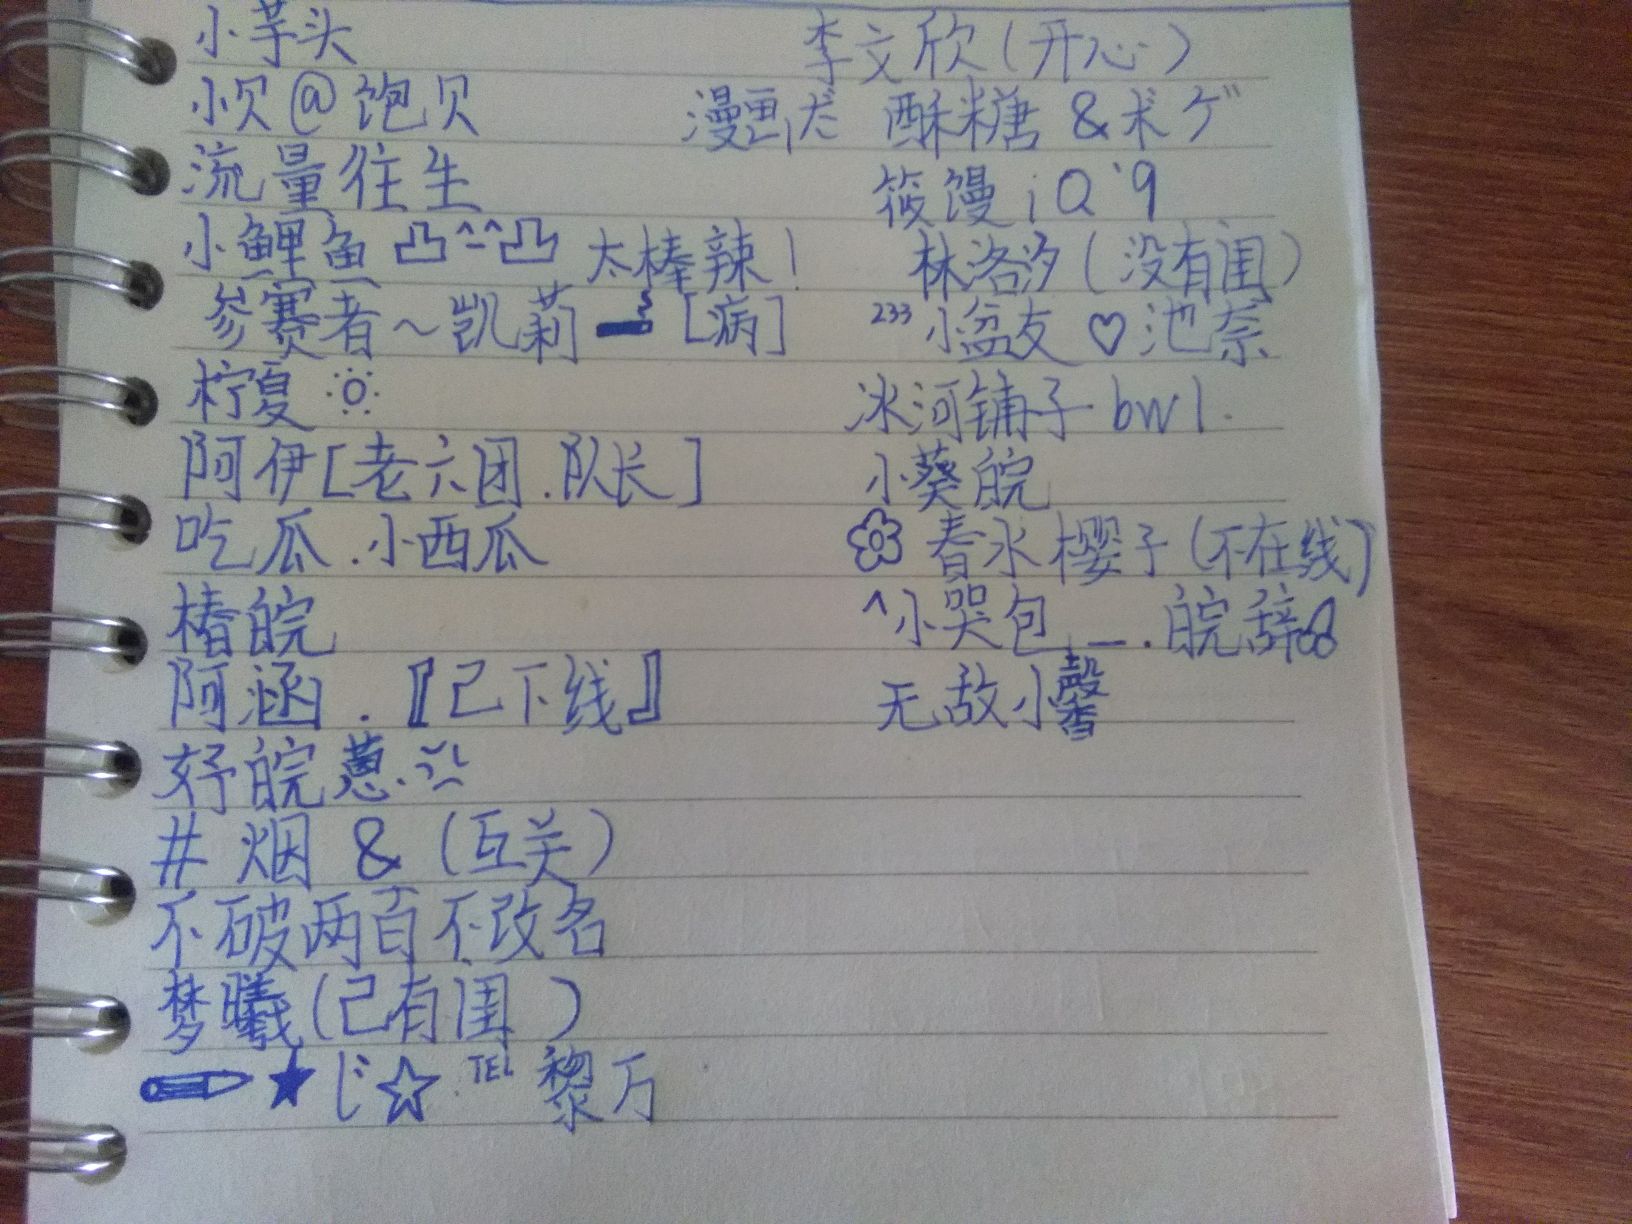 小芋头
小贝@饱贝
流量往生
小鲤鱼 凸^-^凸 太棒辣!
参赛者~凯莉 [病]
柠夏
阿伊[老六团.队长]
吃瓜.小西瓜
椿皖
阿涵.『己下线』
好皖蔥.
# 烟 & (互关)
不破两百不改名
梦曦(己有闺)
★じ☆ TEL 黎万
李文欣(开心)
漫画犬 酥糖&ボゲ
筱馒iQ'9
林洛汐(没有闺)
233小盆友♡池奈
冰河铺子bwl.
小葵皖
春水樱子(不在线)
^小哭包_.皖辞
无敌小馨